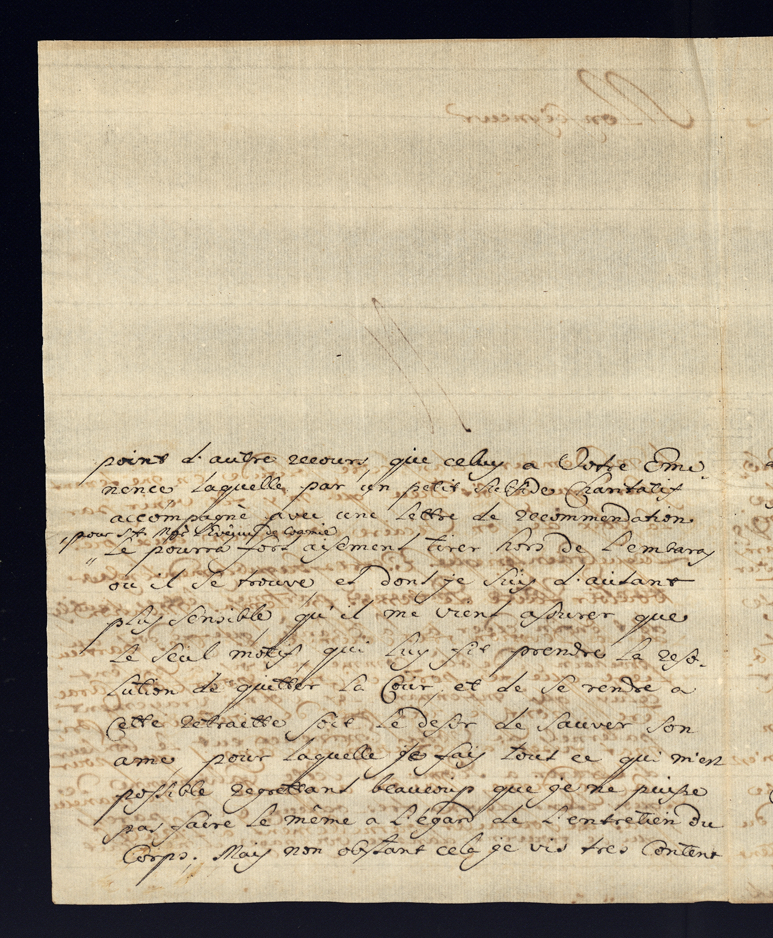 Monseigneur
point d'autre recours que celuy a Votre Emi-
nence laquelle par un petit subside Charitatif
accompagné avec une Lettre de recommendation
pour S.A. Mgr
Le pourra fort aisement tirer hors de L'embaras
ou il se trouve et dont je suis d'autant
plus sensible, qu'il me vient assurer que
Le Seul motif, qui luy fit prendre la reso-
lution de quitter la Cour, et de Se rendre a
Cette retraitte soit le desir de sauver son
ame, pour laquelle je fais tout ce qui m'est
possible regrettant beaucoup que je ne puisse
pas faire le même a L'egard de L'entretien du
Corps. Mais non obstant cela je vis tres Content